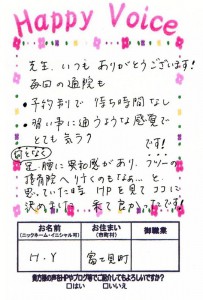 Happy Voice
先生、いつもありがとうございます!
毎回の通院も
・予約制で待ち時間なし
・習い事に通うような感覚で
とても気ラク です!
何となく
足腰に違和感があり、フツーの
接骨院へ行くのもなぁ…と
思っていた時HPを見てココに
決めました。来て良かったです!
お名前
(ニックネーム・イニシャル可)
お住まい
(市町村)
御職業
H・Y
富士見町
貴方様の声をHPやブログ等でご紹介してもよろしいですか?
□はい □いいえ